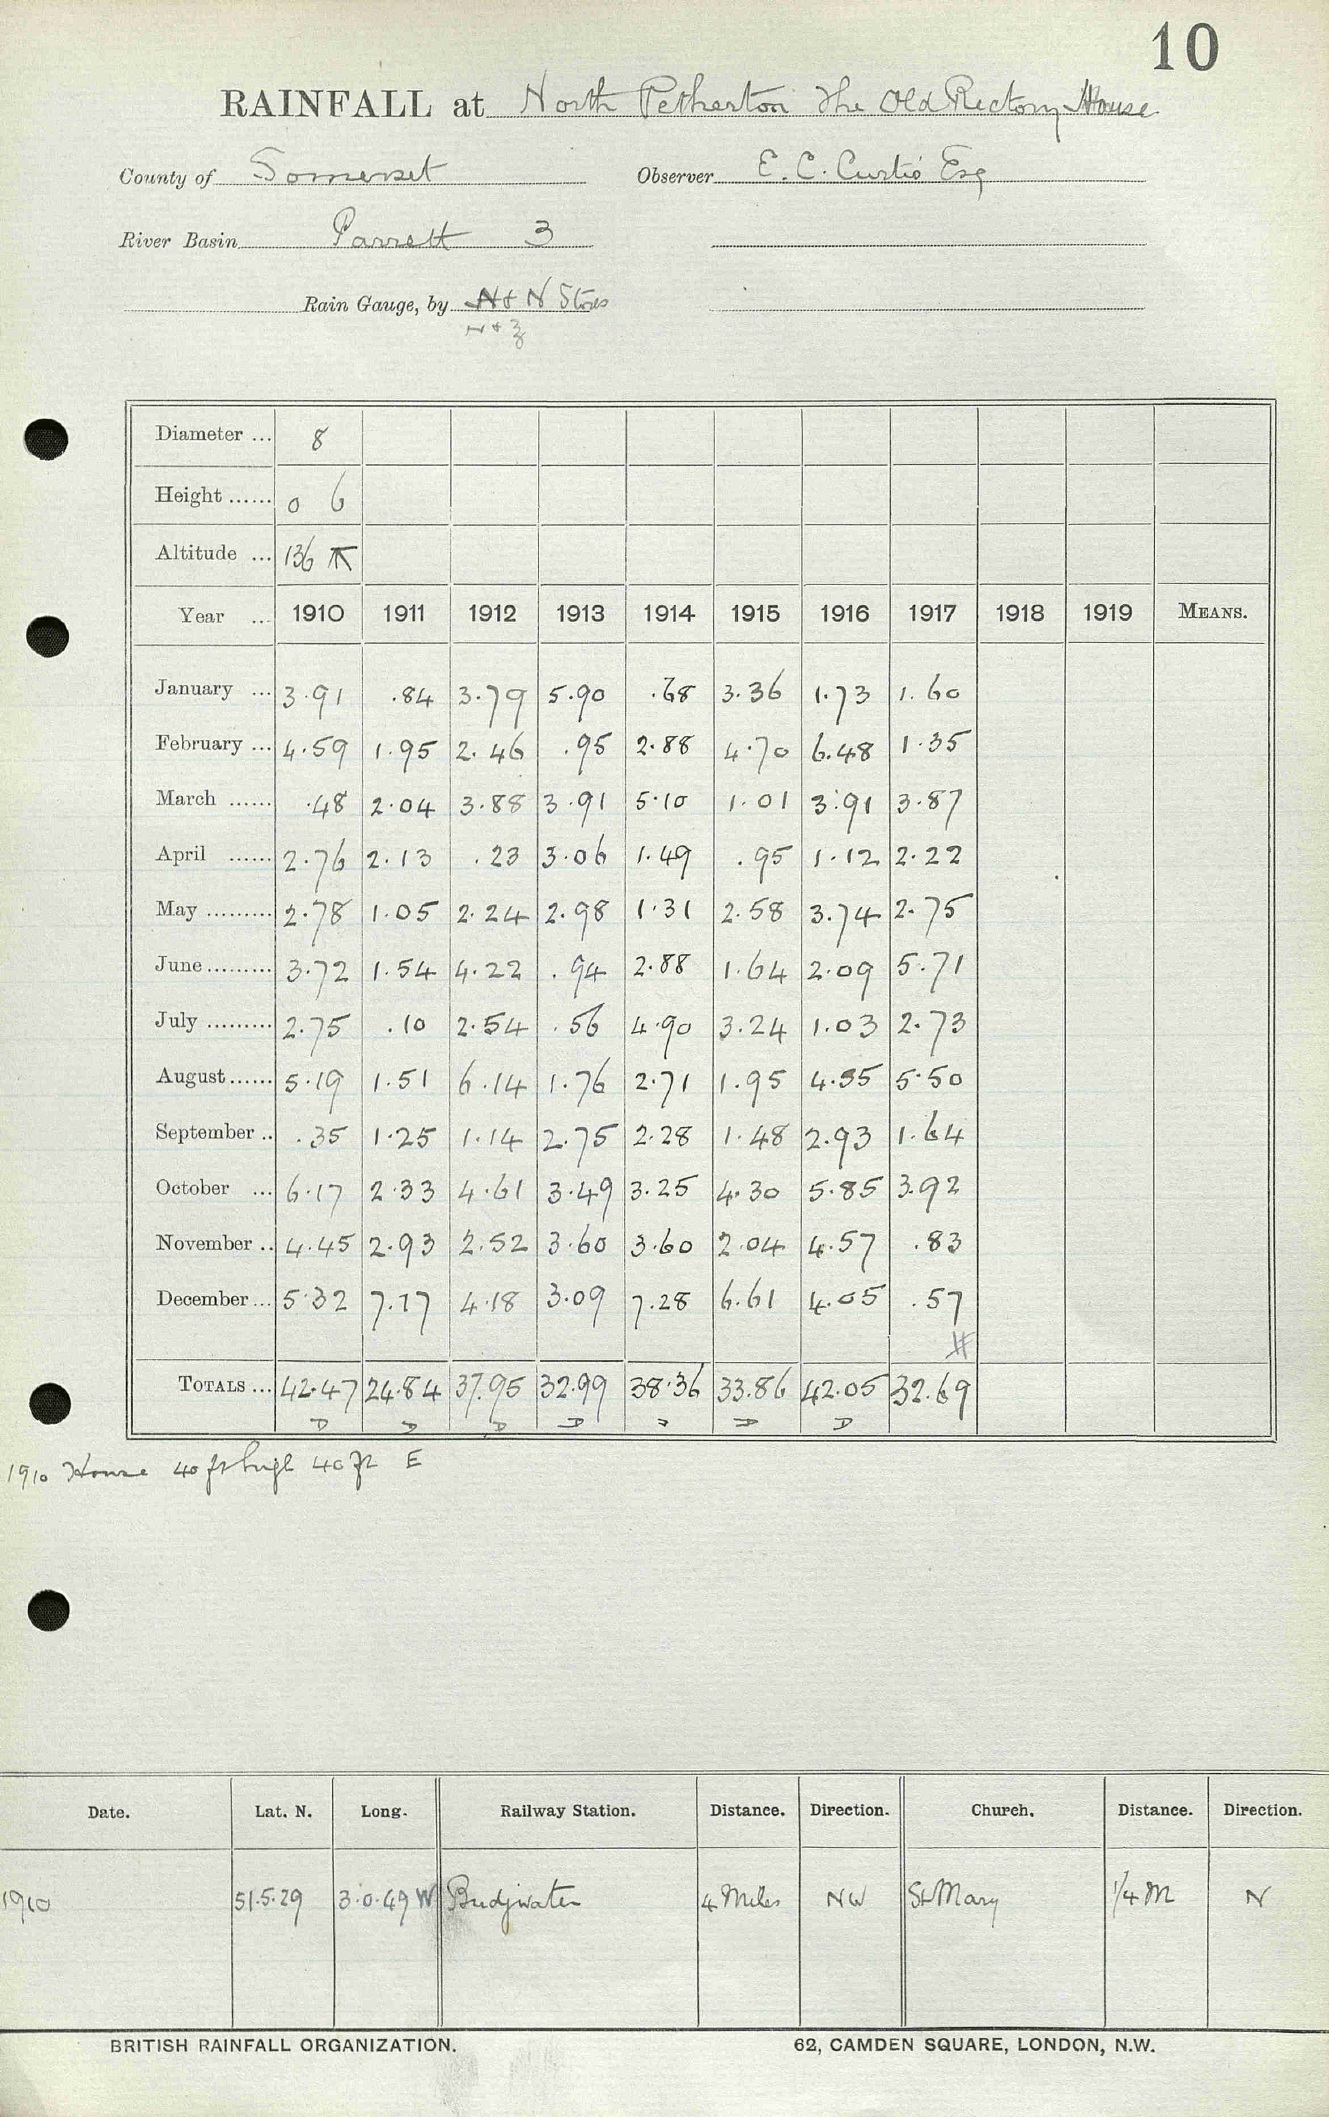 10
RAINFALL at North Petherton The Old Rectory House
County of Somerset Observer E. C. Curtis Esq
River Basin Parrett 3
Rain Gauge, by N & N Stores
N & Z
Diameter ... 8
Height ...... 0 6
Altitude ... 136
Year ... 1910 1911 1912 1913 1914 1915 1916 1917 1918 1919 MEANS.
January ... 3.91 .84 3.79 5.90 .68 3.36 1.73 1.60
February ... 4.59 1.95 2.46 .95 2.88 4.70 6.48 1.35
March ...... .48 2.04 3.88 3.91 5.10 1.01 3.91 3.87
April ...... 2.76 2.13 .23 3.06 1.49 .95 1.12 2.22
May ......... 2.78 1.05 2.24 2.98 1.31 2.58 3.74 2.75
June ......... 3.72 1.54 4.22 .94 2.88 1.64 2.09 5.71
July ......... 2.75 .10 2.54 .56 4.90 3.24 1.03 2.73
August ...... 5.19 1.51 6.14 1.76 2.71 1.95 4.55 5.50
September .. .35 1.25 1.14 2.75 2.28 1.48 2.93 1.64
October ... 6.17 2.33 4.61 3.49 3.25 4.30 5.85 3.92
November .. 4.45 2.93 2.52 3.60 3.60 2.04 4.57 .83
December ... 5.32 7.17 4.18 3.09 7.28 6.61 4.05 .57
TOTALS ... 42.47 24.84 37.95 32.99 38.36 33.86 42.05 32.69
D D D D D D D
1910 House 40 ft high 40 ft E
Date. Lat. N. Long. Railway Station. Distance. Direction. Church. Distance. Direction.
1910 51.5.29 3.0.49 W Bridgwater 4 Miles NW St Mary 1/4 M N
BRITISH RAINFALL ORGANIZATION. 62, CAMDEN SQUARE, LONDON, N.W.